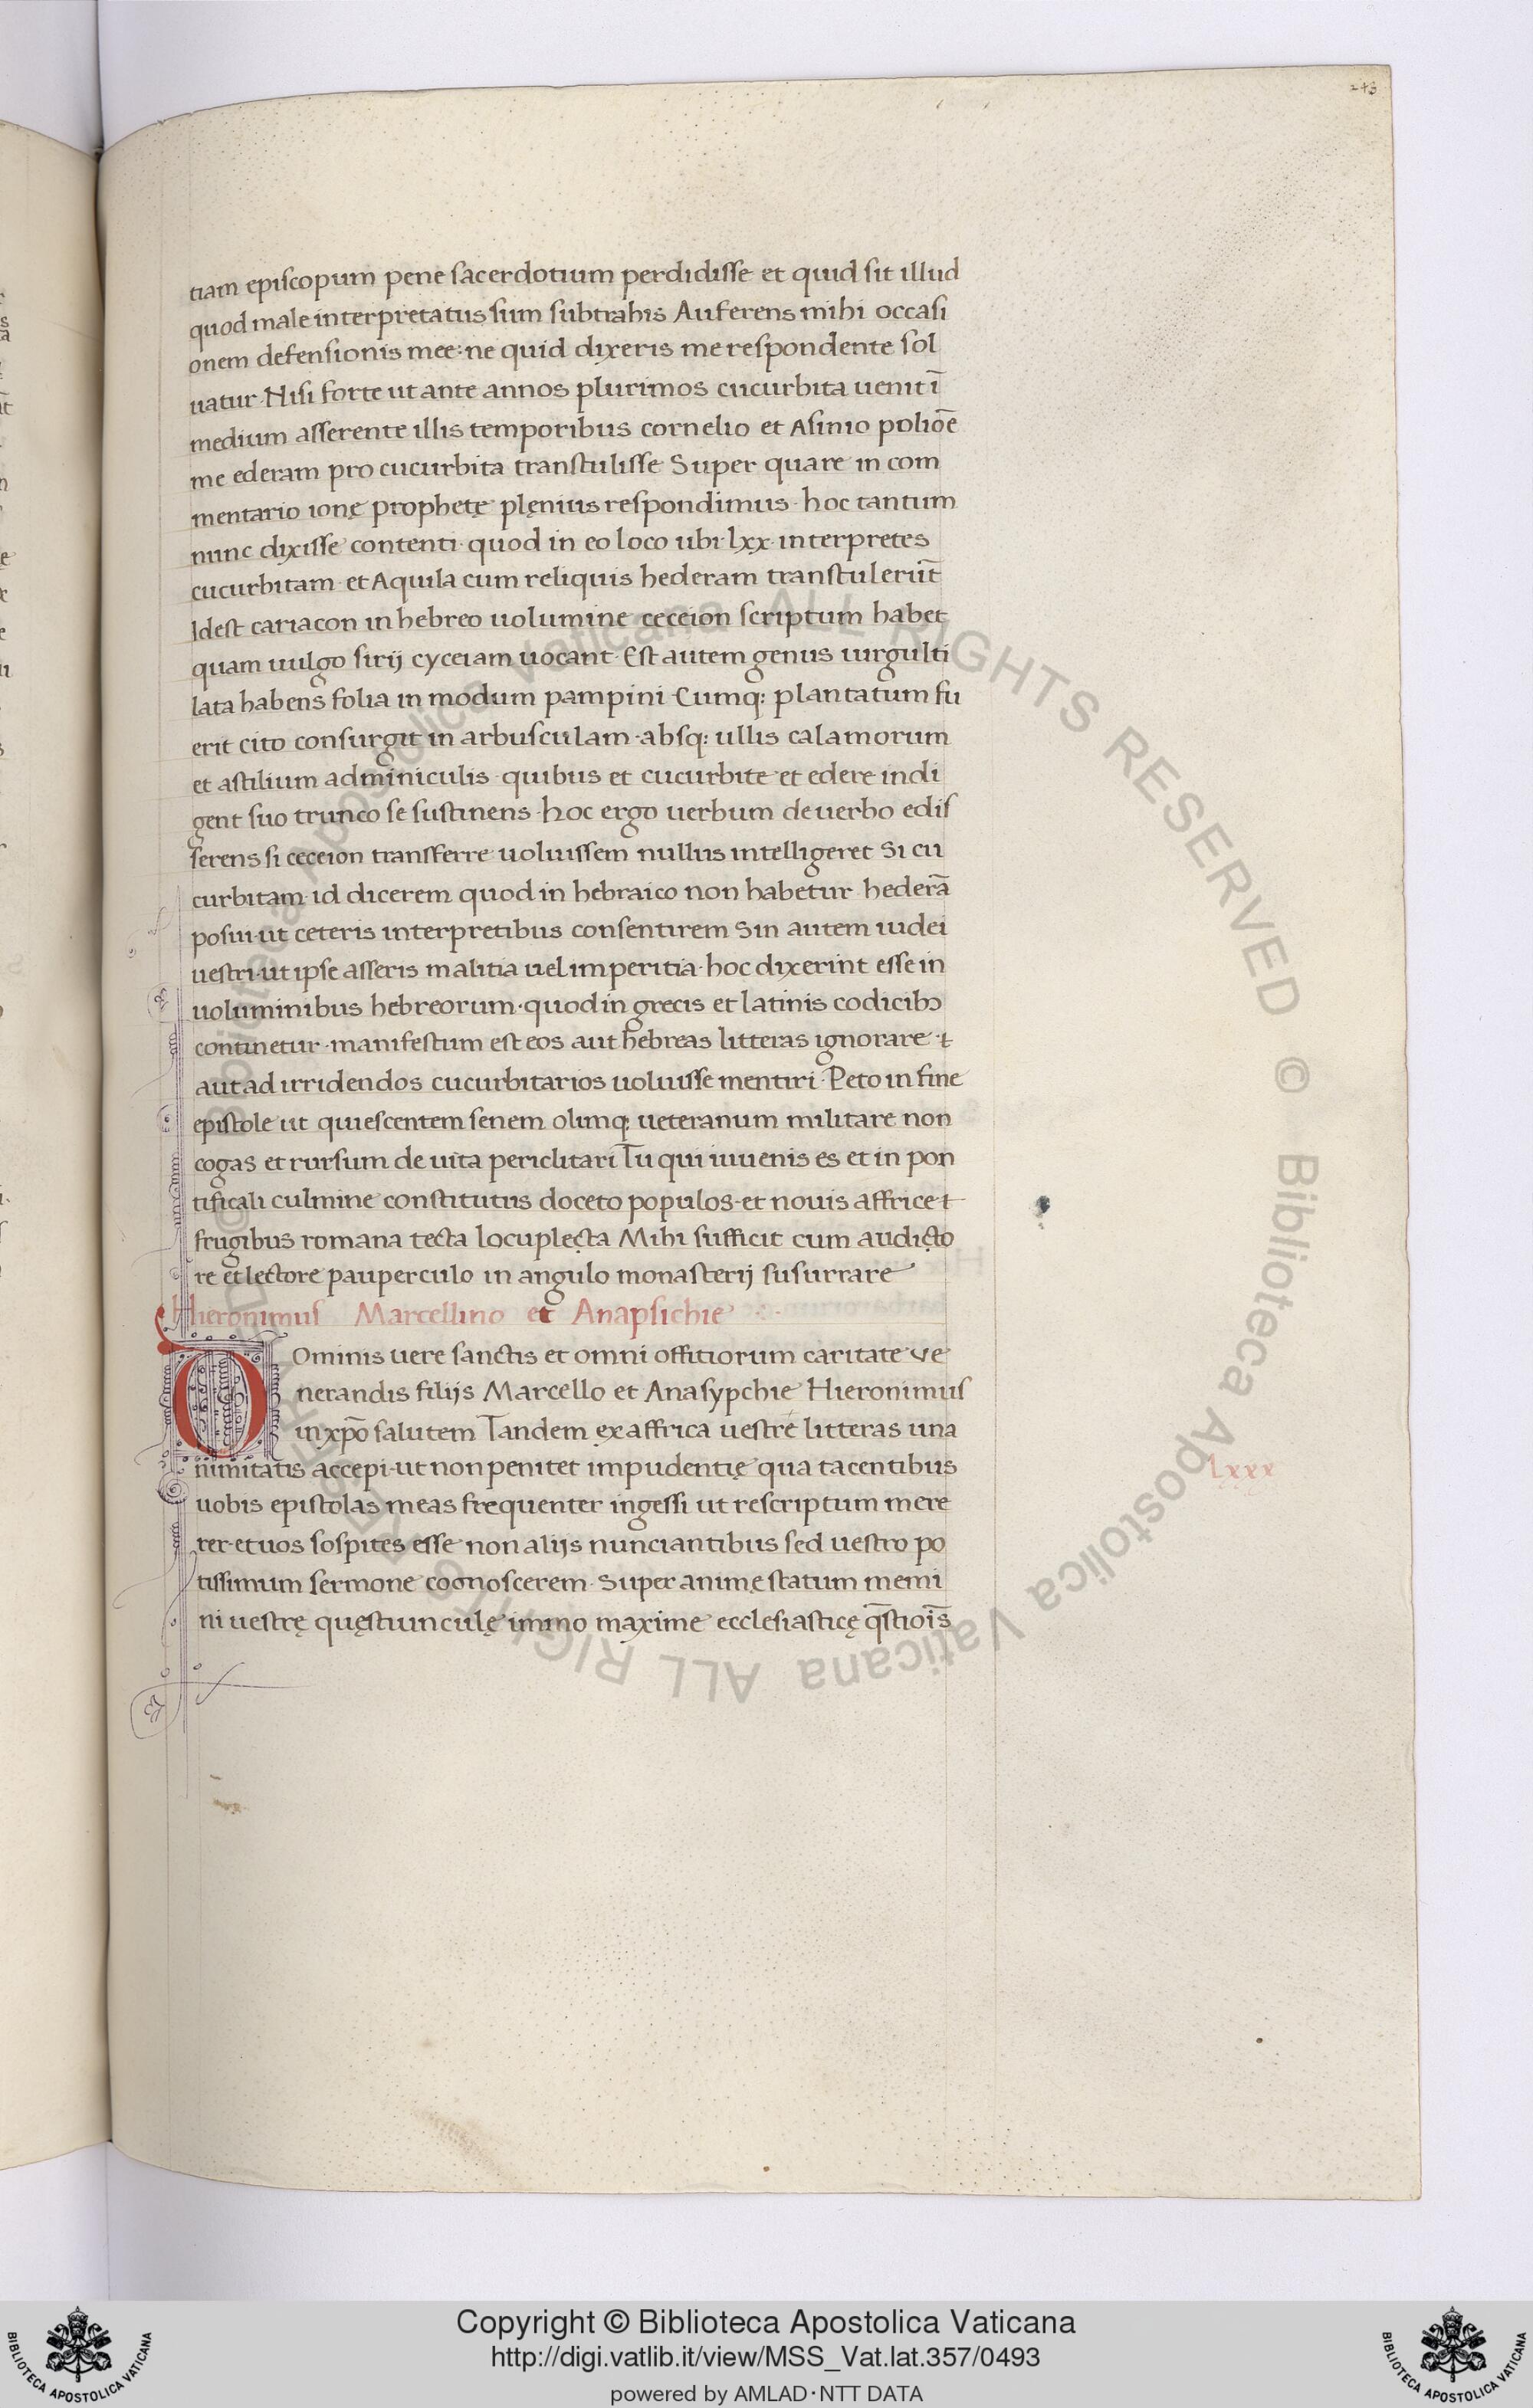 243
tiam episcopum pene sacerdotium perdidisse et quid sit illud
quod male interpretatus sum subtrahis Auferens mihi occasi
onem defensionis mee: ne quid dixeris me respondente sol
uatur· Nisi forte ut ante annos plurimos cucurbita uenit ī
medium asserente illis temporibus cornelio et Asinio poliōe
me ederam pro cucurbita transtulisse Super quare in com
mentario ionę prophetę plęnius respondimus· hoc tantum
nunc dixisse contenti· quod in eo loco ubi· lxx· interpretes
cucurbitam· et Aquila cum reliquis hederam transtulerūt
Idest cariacon in hebreo uolumine ceceion scriptum habet
quam uulgo sirij cyceiam uocant· Est autem genus uirgulti
lata habens folia in modum pampini· Cumq: plantatum fu
erit cito consurgit in arbusculam· absq: ullis calamorum
et astilium adminiculis· quibus et cucurbite et edere indi
gent suo trunco se sustinens· hoc ergo uerbum de uerbo edis
serens si ceceion transferre uoluissem nullus intelligeret Si cu
curbitam· id dicerem quod in hebraico non habetur hederā
posui· ut ceteris interpretibus consentirem Sin autem iudei
uestri· ut ipse asseris malitia uel imperitia· hoc dixerint esse in
uoluminibus hebreorum· quod in grecis et latinis codicibꝫ
continetur· manifestum est eos aut hebreas litteras ignorare·
aut ad irridendos cucurbitarios uoluisse mentiri· Peto in fine
epistole ut quiescentem senem olimq: ueteranum militare non
cogas et rursum de uita periclitari Tu qui iuuenis es et in pon
tificali culmine constitutus doceto populos· et nouis affrice
frugibus romana tecta locuplęcta Mihi sufficit cum audięcto
re et lectore pauperculo in angulo monasterij susurrare
Hieronimus Marcellino et Anapsichie
DOminis uere sanctis et omni offitiorum caritate ue
nerandis filijs Marcello et Anasypchie Hieronimus
in xp̄o salutem Tandem ex affrica uestre litteras una
nimitatis accepi· ut non penitet impudentię qua tacentibus
Lxxx
uobis epistolas meas frequenter ingessi ut rescriptum mere
rer· et uos sospites esse non alijs nunciantibus sed uestro po
tissimum sermone cognoscerem· Super animę statum memi
ni uestrę quęstiunculę immo maxime ecclesiasticę q̄stiōis
© Biblioteca Apostolica Vaticana ALL RIGHTS RESERVED © Biblioteca Apostolica Vaticana ALL RIGHTS RESERVED
Copyright © Biblioteca Apostolica Vaticana
http://digi.vatlib.it/view/MSS_Vat.lat.357/0493
powered by AMLAD·NTT DATA
BIBLIOTECA APOSTOLICA VATICANA
BIBLIOTECA APOSTOLICA VATICANA